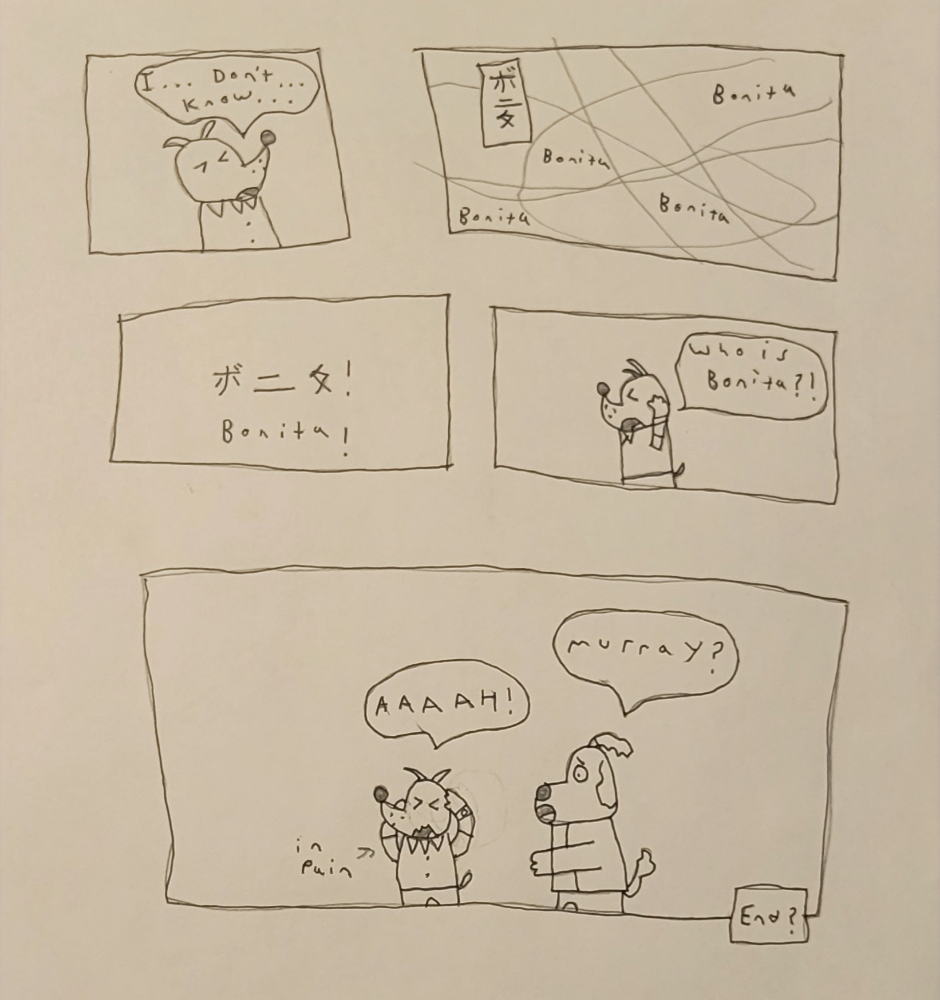 I... Don't...
Know...
ボニタ
Bonita
Bonita
Bonita
Bonita
ボニタ!
Bonita!
Who is
Bonita?!
AAAAH!
murray?
in
pain
End?